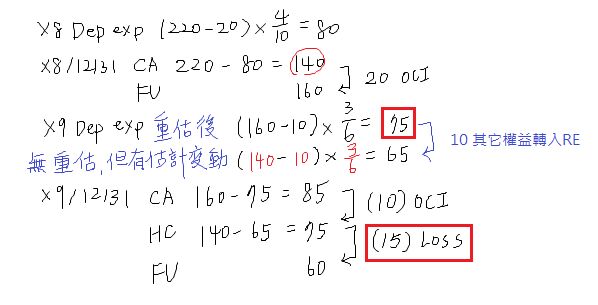 X8 Dep exp (220-20)×4/10=80
X8/12/31 CA 220-80=140
FV 160
20 OCI
X9 Dep exp 重估後 (160-10)×3/6=75
無重估,但有估計變動(140-10)×3/6=65
10 其它權益轉入RE
X9/12/31 CA 160-75=85
(10) OCI
HC 140-65=75
(15) Loss
FV 60